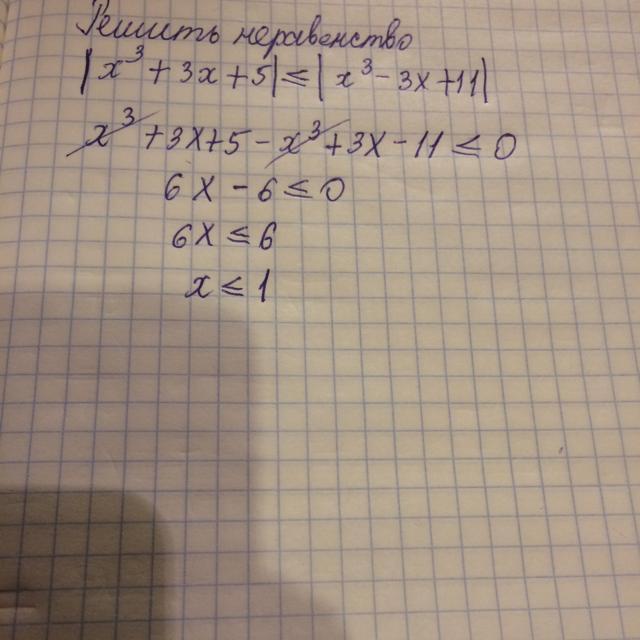 Решить неравенство
|x³+3x+5|≤|x³-3x+11|
x³+3x+5-x³+3x-11≤0
6x-6≤0
6x≤6
x≤1